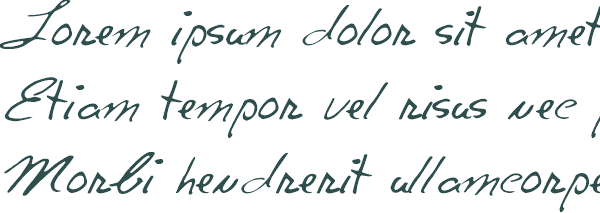 Lorem ipsum dolor sit amet
Etiam tempor vel risus nec
Morbi hendrerit ullamcorpe